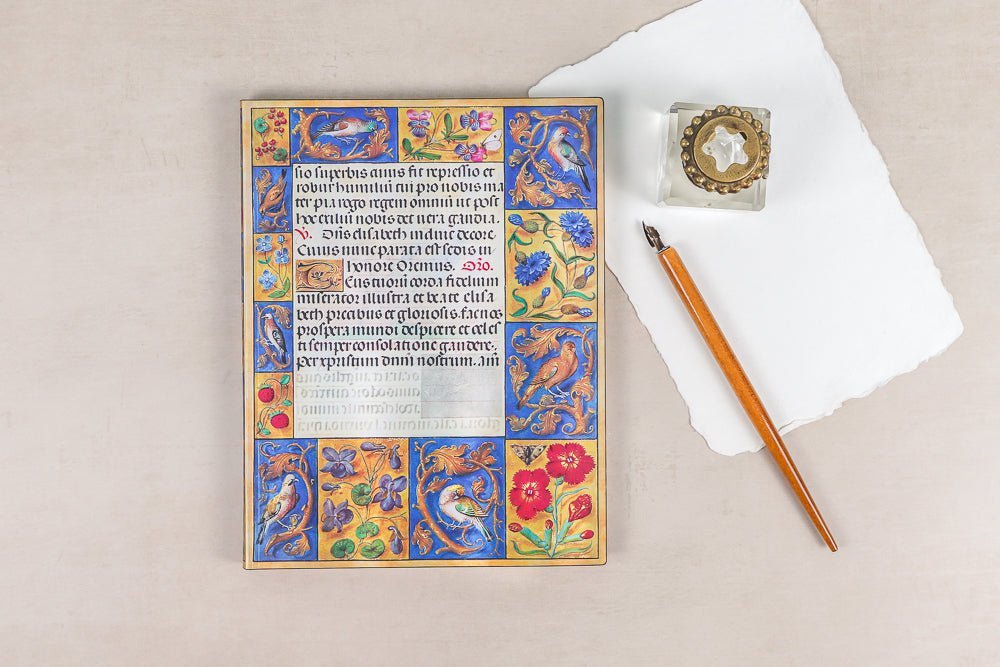 sio superbis anus fit repressio et
robur humiliū cui pro nobis ma
ter pia rogo regem omniū ut post
hoc exiliū nobis det uera gaudia.
V. Dn̄s elisabeth induit decore.
Cuius nunc parata est sedis in
honore Oremus. Orō.
Eus tuorū corda fidelium
miserator illustra et beate elisa
beth precabus et gloriosis. fac nos
prospera mundi despicere et celes
ti semper consolatione gaudere.
per xpistum dnm̄ nostrum. am̄